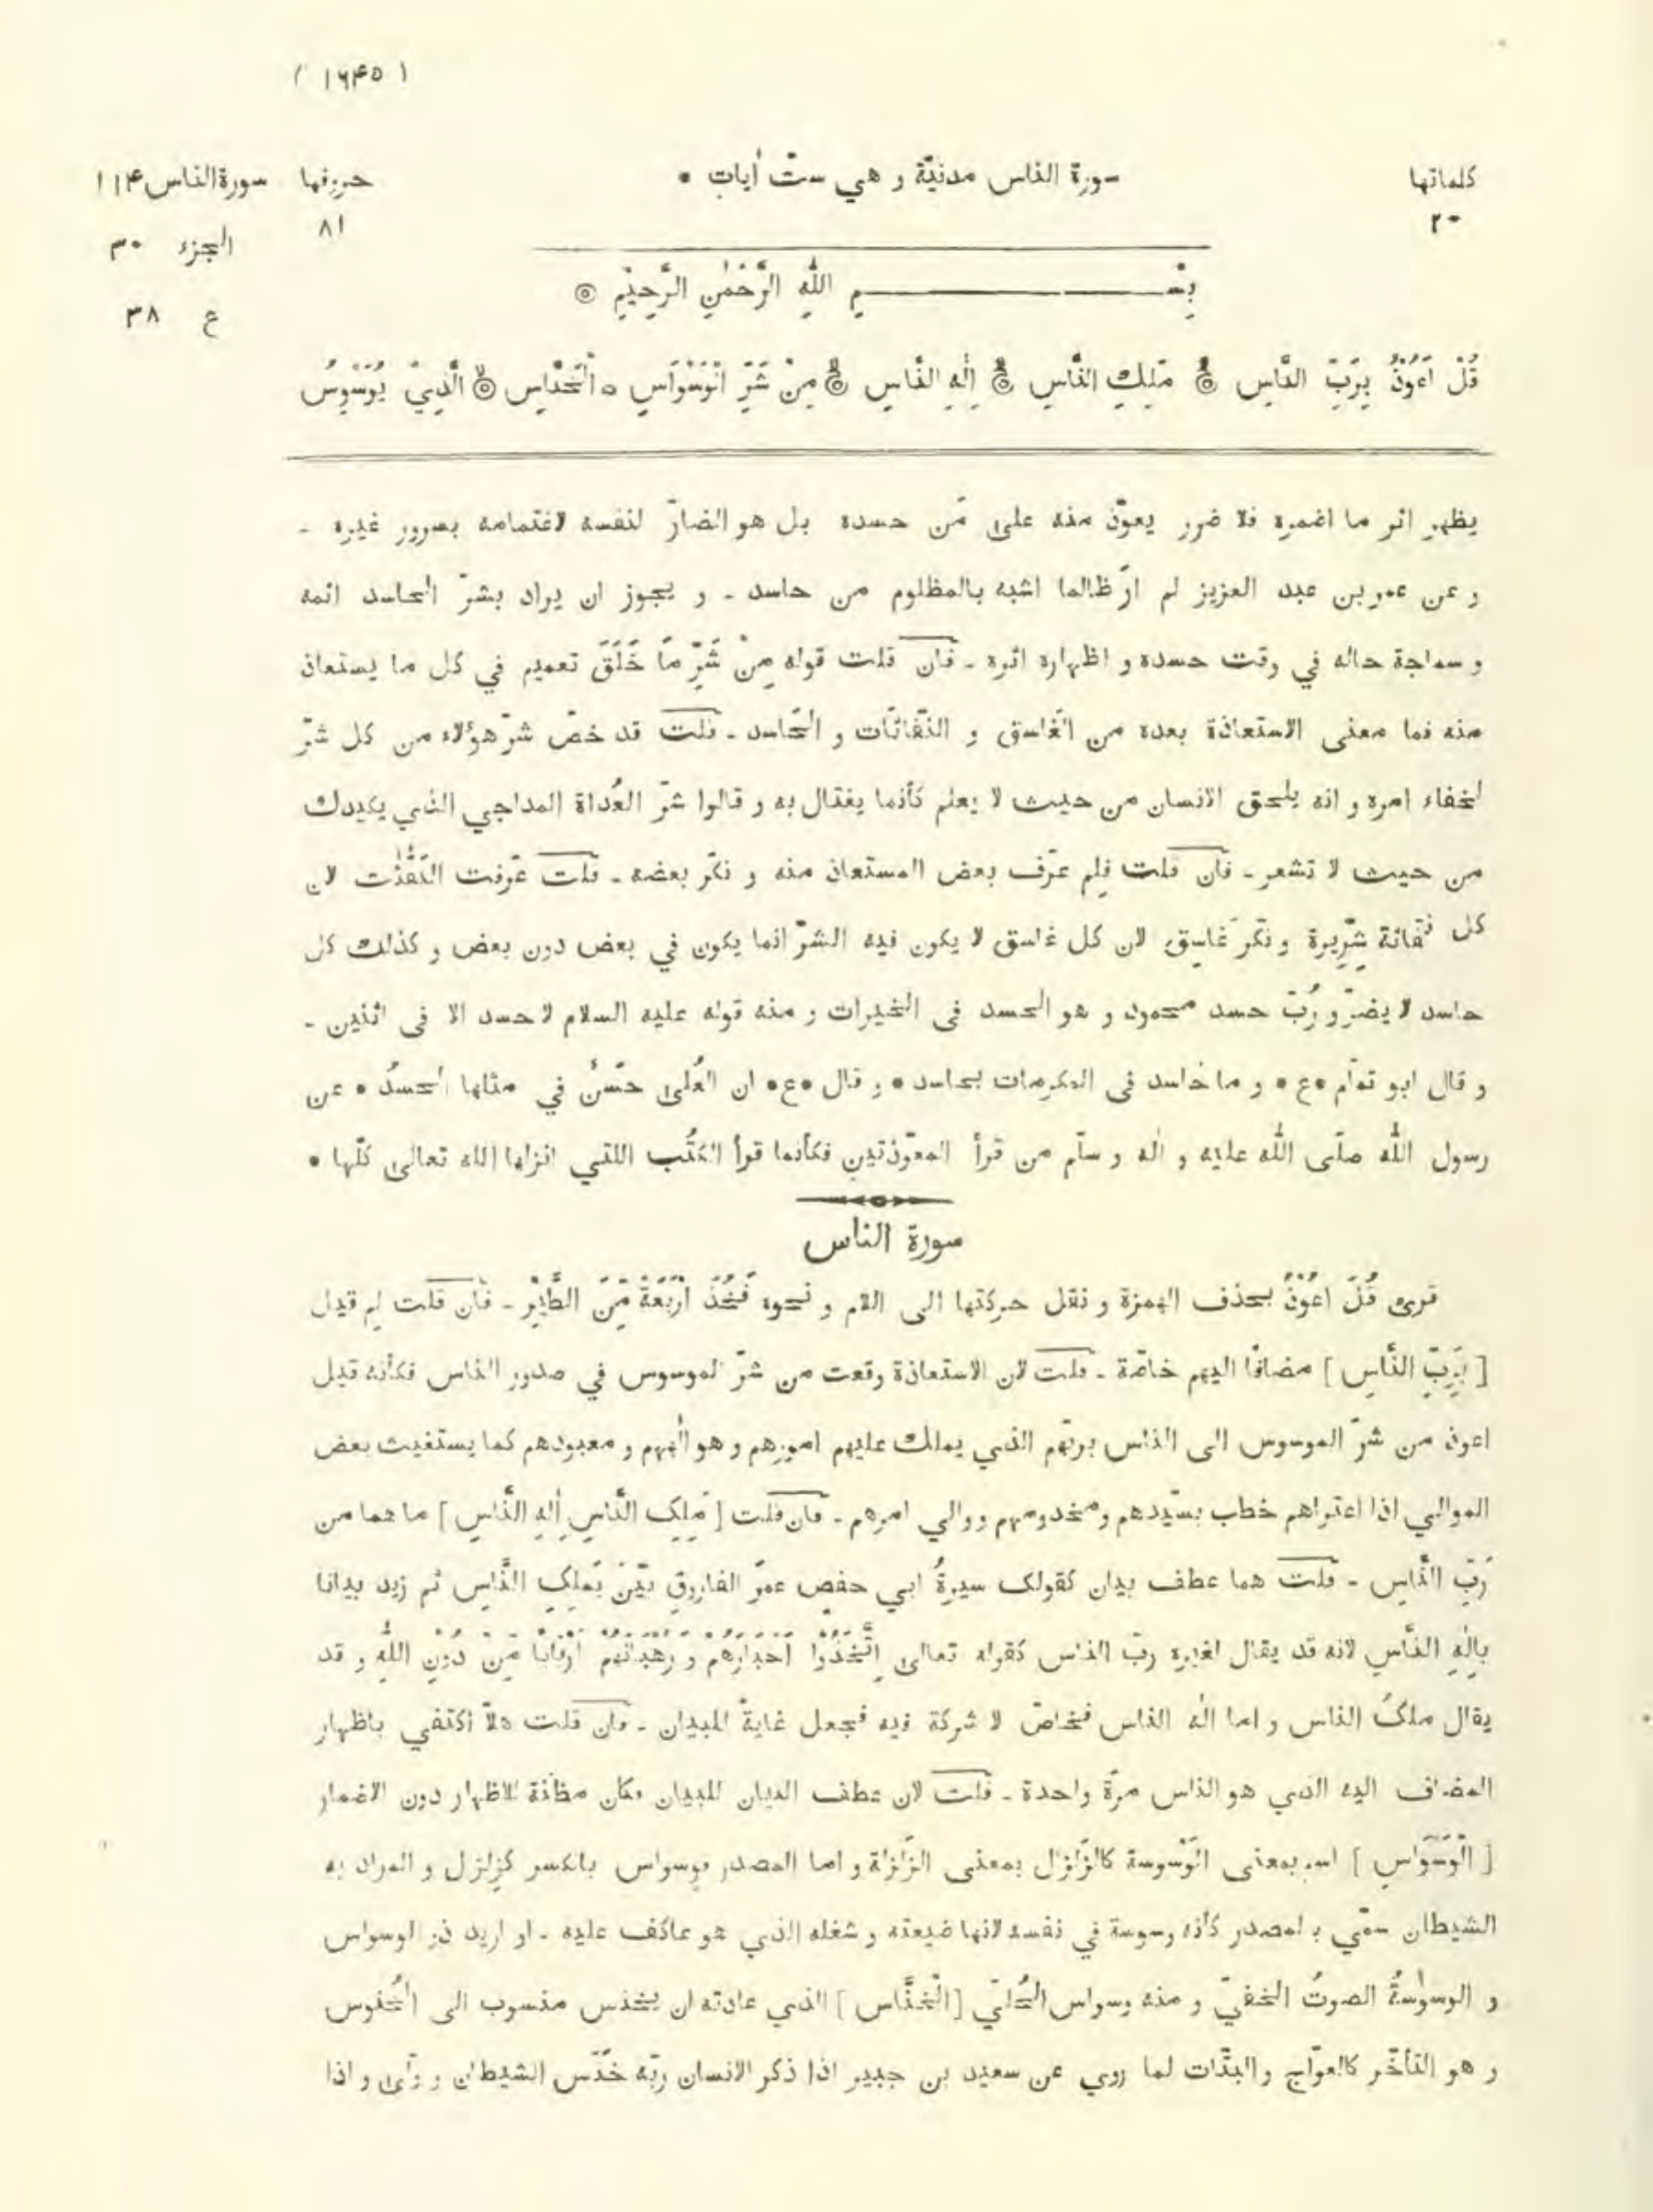 ( ١٦٤٥ )
كلماتها سورة الناس مدنيّة و هي ستّ اٰيات • حروفها سورة الناس ١١٤
٢٠ ٨١
الجزء ٣٠
بِسْمِ اللّٰهِ الرَّحْمٰنِ الرَّحِيْمِ ۞
ع ٣٨
قُلْ اَعُوْذُ بِرَبِّ النَّاسِ ۞ مَلِكِ النَّاسِ ۞ اِلٰهِ النَّاسِ ۞ مِنْ شَرِّ الْوَسْوَاسِ ۵ الْخَنَّاسِ ۞ الَّذِيْ يُوَسْوِسُ
يظهر اثر ما اضمره فلا ضرر يعودّ منه على مَن حسده بل هو الضارّ لنفسه لاغتمامه بسرور غيره ـ
و عن عمر بن عبد العزيز لم ارَ ظالما اشبه بالمظلوم من حاسد ـ و يجوز ان يراد بشرّ الحاسد اثمه
و سماجة حاله في وقت حسده و اظهاره اثره ـ فان قلت قوله مِنْ شَرِّ مَا خَلَقَ تعميم في كل ما يستعاذ
منه فما معنى الاستعاذة بعده من الغَاسق و النَّفَّاثَات و الحَاسد ـ قلت قد خصّ شرّ هؤلاء من كل شرّ
لخفاء امره و انه يلحق الانسان من حيث لا يعلم كأنما يغتال به و قالوا شرّ العُداة المداجي الذي يكيدك
من حيث لا تشعر ـ فان قلت فلم عرّف بعض المستعاذ منه و نكّر بعضه ـ قلت عرّفت النَّفّٰثٰت لان
كل نفّاثة شِرّيرة و نكّر غَاسِق لان كل غاسق لا يكون فيه الشرّ انما يكون في بعض دون بعض و كذلك كل
حاسد لا يضرّ و رُبّ حسد محمود و هو الحسد فى الخيرات و منه قوله عليه السلام لا حسد الا فى اثنين ـ
و قال ابو تمّام •ع• و ما حَاسد فى المكرمات بحاسد • و قال •ع• ان العُلى حَسَنٌ في مثلها الحَسدُ • عن
رسول اللّٰه صلّى اللّٰه عليه و اٰله و سلّم من قرأ المعوّذتين فكأنما قرأ الكُتُب اللتي انزلها الله تعالى كلّها •
سورة الناس
قرئ قُلَ اعُوْذُ بحذف الهمزة و نقل حركتها الى اللام و نحوه فَخُذَ ارْبَعَةً مِّنَ الطَّيْرِ ـ فان قلت لم قيل
[ بِرَبِّ النَّاسِ ] مضافًا اليهم خاصّة ـ قلت لان الاستعاذة وقعت من شرّ الموسوس في صدور الناس فكأنه قيل
اعوذ من شرّ الموسوس الى الناس بربّهم الذي يملك عليهم امورهم و هو الٰههم و معبودهم كما يستغيث بعض
الموالي اذا اعتراهم خطب بسيّدهم و مخدومهم و والي امرهم ـ فان قلت [ مَلِكِ النَّاسِ اِلٰهِ النَّاسِ ] ما هما من
رَبّ النَّاسِ ـ قلت هما عطف بيان كقولك سيرةُ ابي حفصٍ عمرَ الفاروقِ بيّن بمَلِكِ النَّاسِ ثم زيد بيانا
بِاِلٰهِ النَّاسِ لانه قد يقال لغيره ربّ الناس كقوله تعالى اِتَّخَذُوْا اَحْبَارَهُمْ وَ رُهْبَانَهُمْ اَرْبَابًا مِّنْ دُوْنِ اللّٰهِ و قد
يقال ملكُ الناس و اما اٰلٰه الناس فخاصّ لا شركة فيه فجعل غايةً للبيان ـ فان قلت هلاّ اكتفي باظهار
المضاف اليه الذي هو الناس مرّة واحدة ـ قلت لان عطف البيان للبيان فكان مظنّة للاظهار دون الاضمار
[ الْوَسْوَاسِ ] اسم بمعنى الوَسْوسة كالزَّلزال بمعنى الزَّلزلة و اما المصدر فوِسواس بالكسر كزِلزل و المراد به
الشيطان سمّي بالمصدر كأنه وسوسة في نفسه لانها ضيعته و شغله الذي هو عاكف عليه ـ او اريد ذو الوسواس
و الوسوَسةُ الصوتُ الخفيّ و منه وسواس الحُليّ [ الْخَنَّاسِ ] الذي عادته ان يخنس منسوب الى الخُنوس
و هو التأخّر كالعوّاج و البتّات لما روي عن سعيد بن جبير اذا ذكر الانسان ربّه خَنَس الشيطان و ولّى و اذا